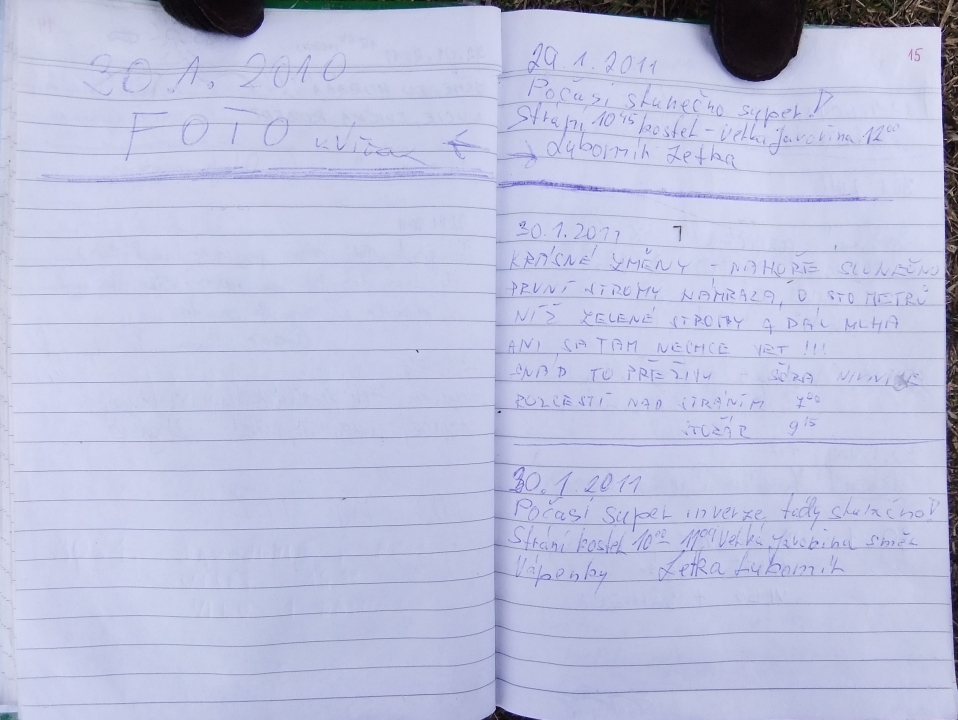 30.1.2010
FOTO
15
29.1.2011
Počasí slunečno super!
Strání 10⁴⁵ kostel - Velká Javořina 12⁰⁰
Lubomír Zetka
30.1.2011
KRÁSNÉ ZMĚNY - NAHOŘE SLUNEČNO
PRVNÍ STROMY NÁMRAZA, O STO METRŮ
NÍŽ ZELENÉ STROMY A DÁL MLHA
ANI SA TAM NECHCE JET !!!
SNAD TO PŘEŽIJU -
ROZCESTÍ NAD STRÁNÍM
9¹⁵
30.1.2011
Počasí super inverze tady slunečno!
Strání kostel 10⁰² Velká Javořina směr
Vápenky Zetka Lubomír